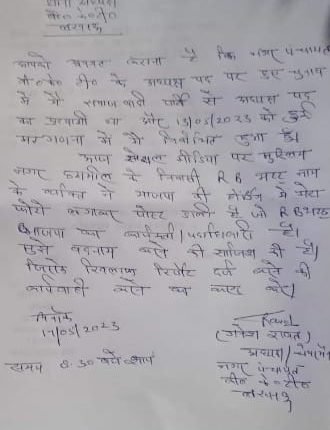 थाना अध्यक्ष
लखनऊ
आपको अवगत कराना है कि नगर पंचायत
के अध्यक्ष पद पर हुए चुनाव
में मैं समाजवादी पार्टी से अध्यक्ष पद
का प्रत्याशी था और 13/05/2023 को हुई
मतगणना में मैं निर्वाचित हुआ हूँ।
आज सोशल मीडिया पर
नगर के निवासी R B भरत नाम
के व्यक्ति ने भाजपा की होर्डिंग में मेरा
फोटो लगाकर पोस्ट डाली है जो R B भरत
भाजपा का कार्यकर्ता / पदाधिकारी है।
मुझे बदनाम करने की साजिश की है।
जिसके खिलाफ रिपोर्ट दर्ज करने की
कार्यवाही करने का कष्ट करें।
दिनांक
14/05/2023
समय 8.30 बजे शाम
(गणेश रावत)
अध्यक्ष /
नगर पंचायत
लखनऊ